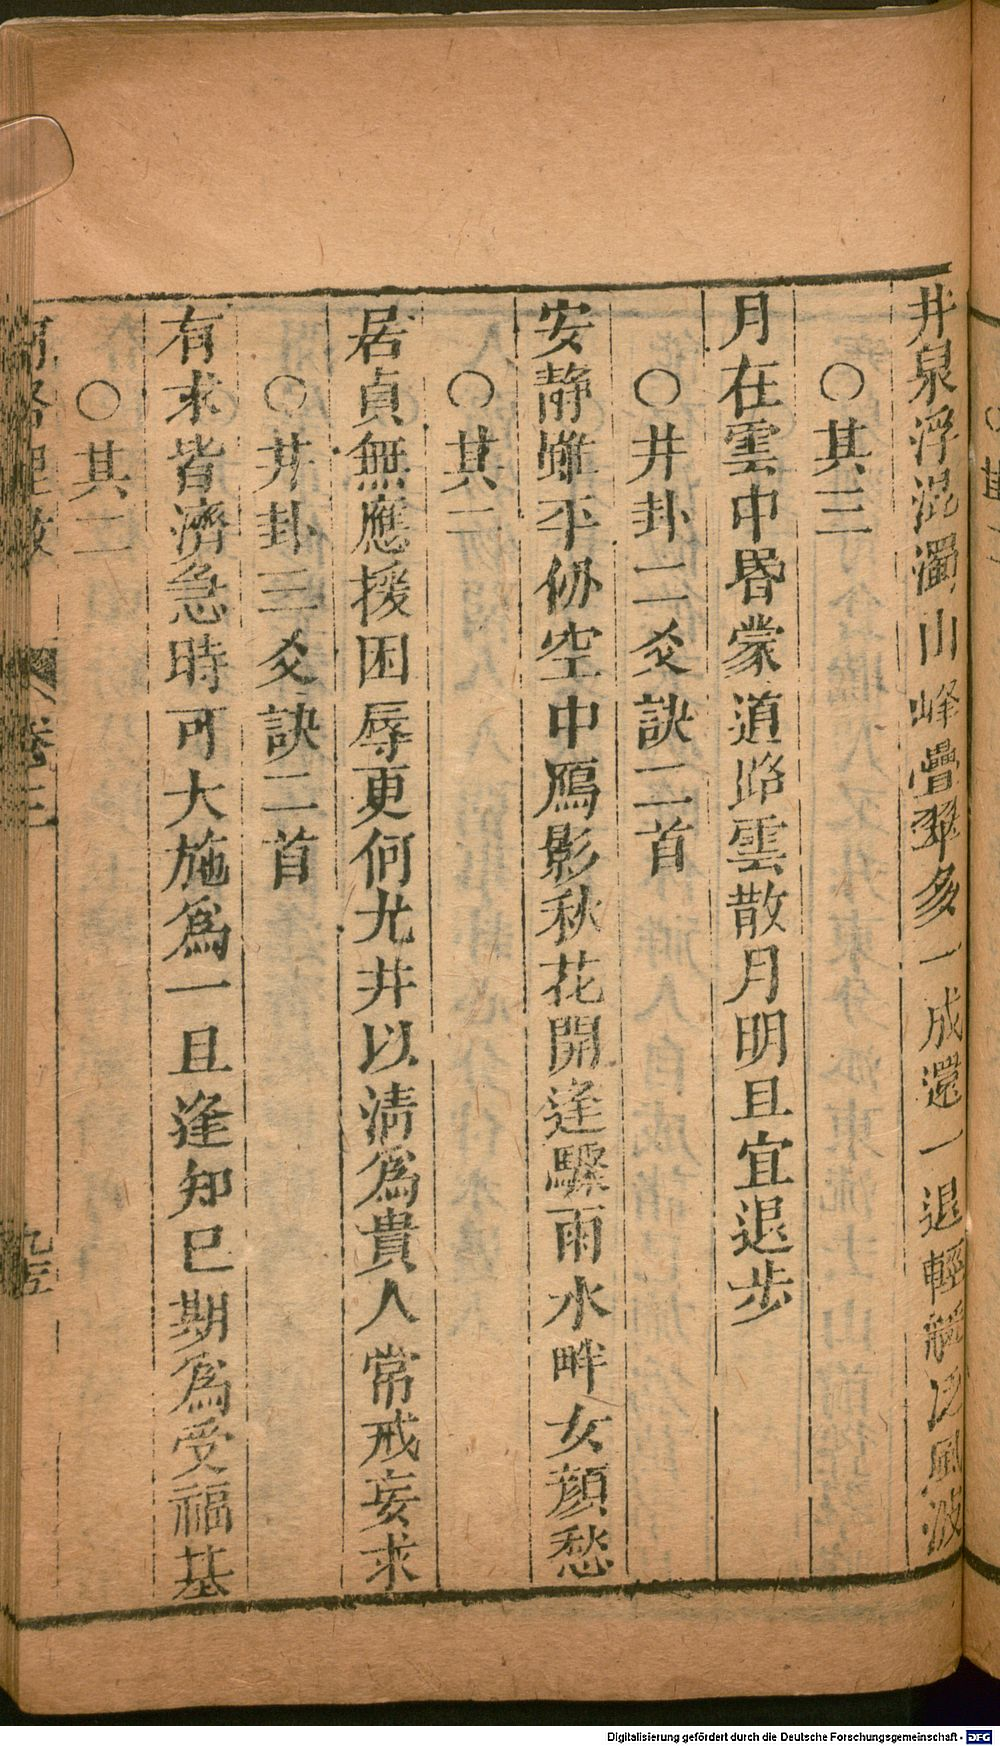 井泉浮混濁山峰疊翠多一成還一退輕舟泛風波
○其三
月在雲中昬蒙道路雲散月明且宜退步
○井卦二爻訣二首
安靜雖平份空中鴈影秋花開逢驟雨水畔女顏愁
○其二
居貞無應援困辱更何尤井以淸為貴人常戒妄求
○井卦三爻訣二首
有求皆濟急時可大施為一旦逢知已期為受福基
○其二
河洛理數 卷三 九五
Digitalisierung gefördert durch die Deutsche Forschungsgemeinschaft - DFG